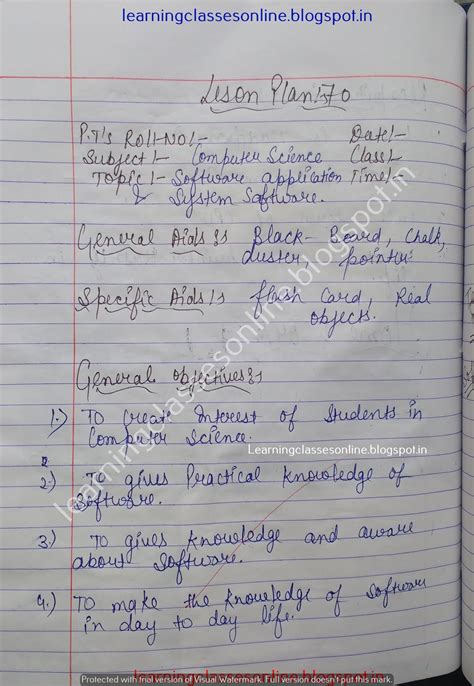 learningclassesonline.blogspot.in
Leson Plan:- 70
P.T's Roll-NO!- Date!-
Subject!- Computer Science Class!-
Topic!- Software application Time!-
& System Software.
General Aids:- Black-Board, Chalk,
duster, pointer.
Specific Aids:- flash Card, Real
objects.
General objectives:-
1.) To creat Interest of Students in
Computer Science.
Learningclassesonline.blogspot.in
2.) To gives Practical Knowledge of
Software.
3.) To gives Knowledge and aware
about Software.
4.) To make the Knowledge of Software
in day to day life.
learningclassesonline.blogspot.in
Protected with trial version of Visual Watermark. Full version doesn't put this mark.
learningclassesonline.blogspot.in